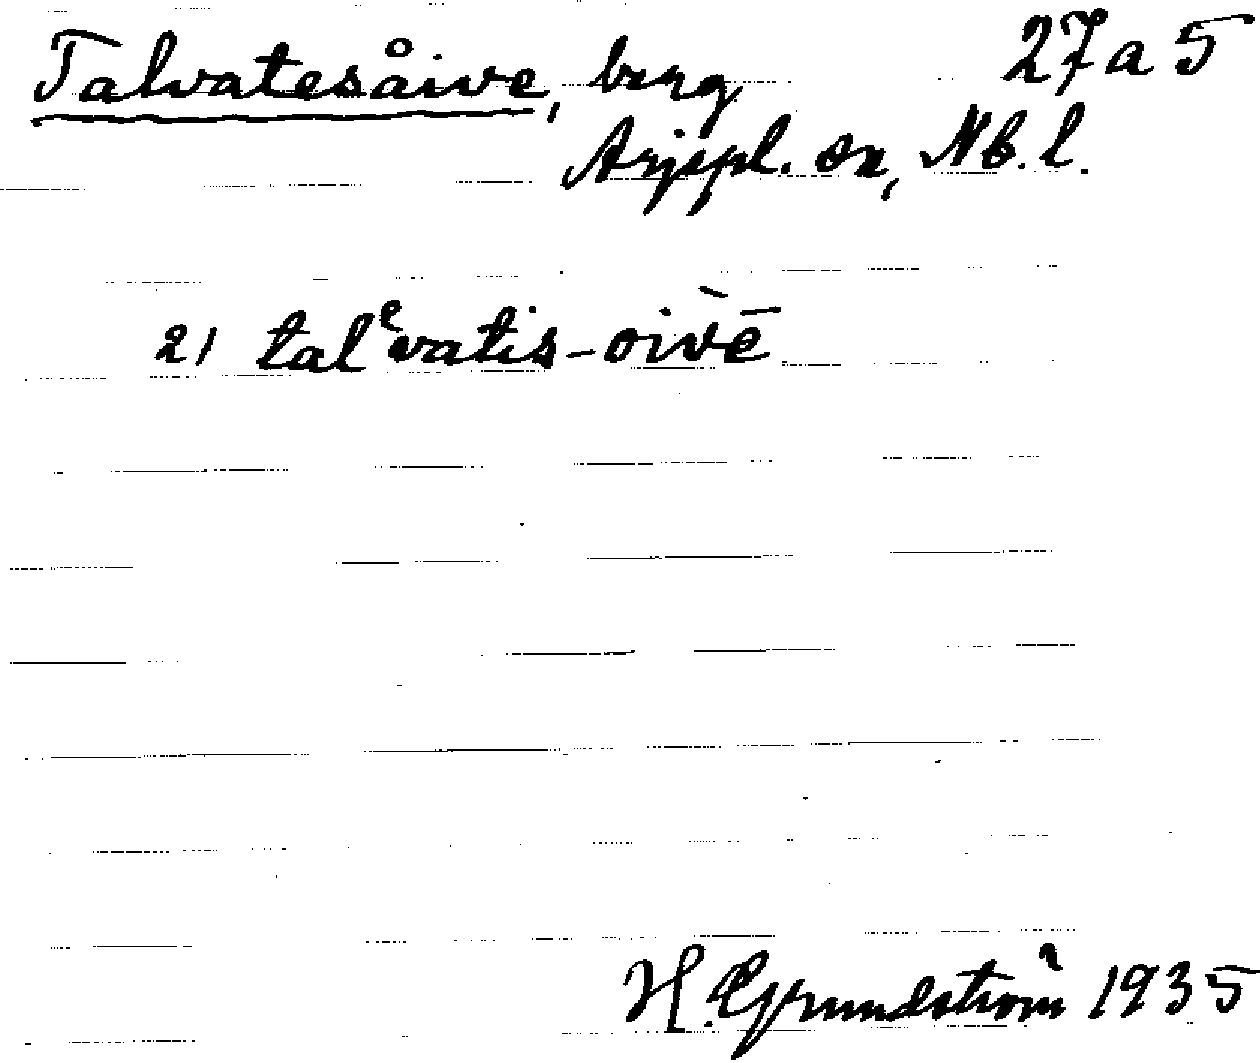 Talvatesåive, berg 27a5
Arjepl. sn, Nb. l.
2) talᵉvatis-oi̯vē
H. Grundström 1935